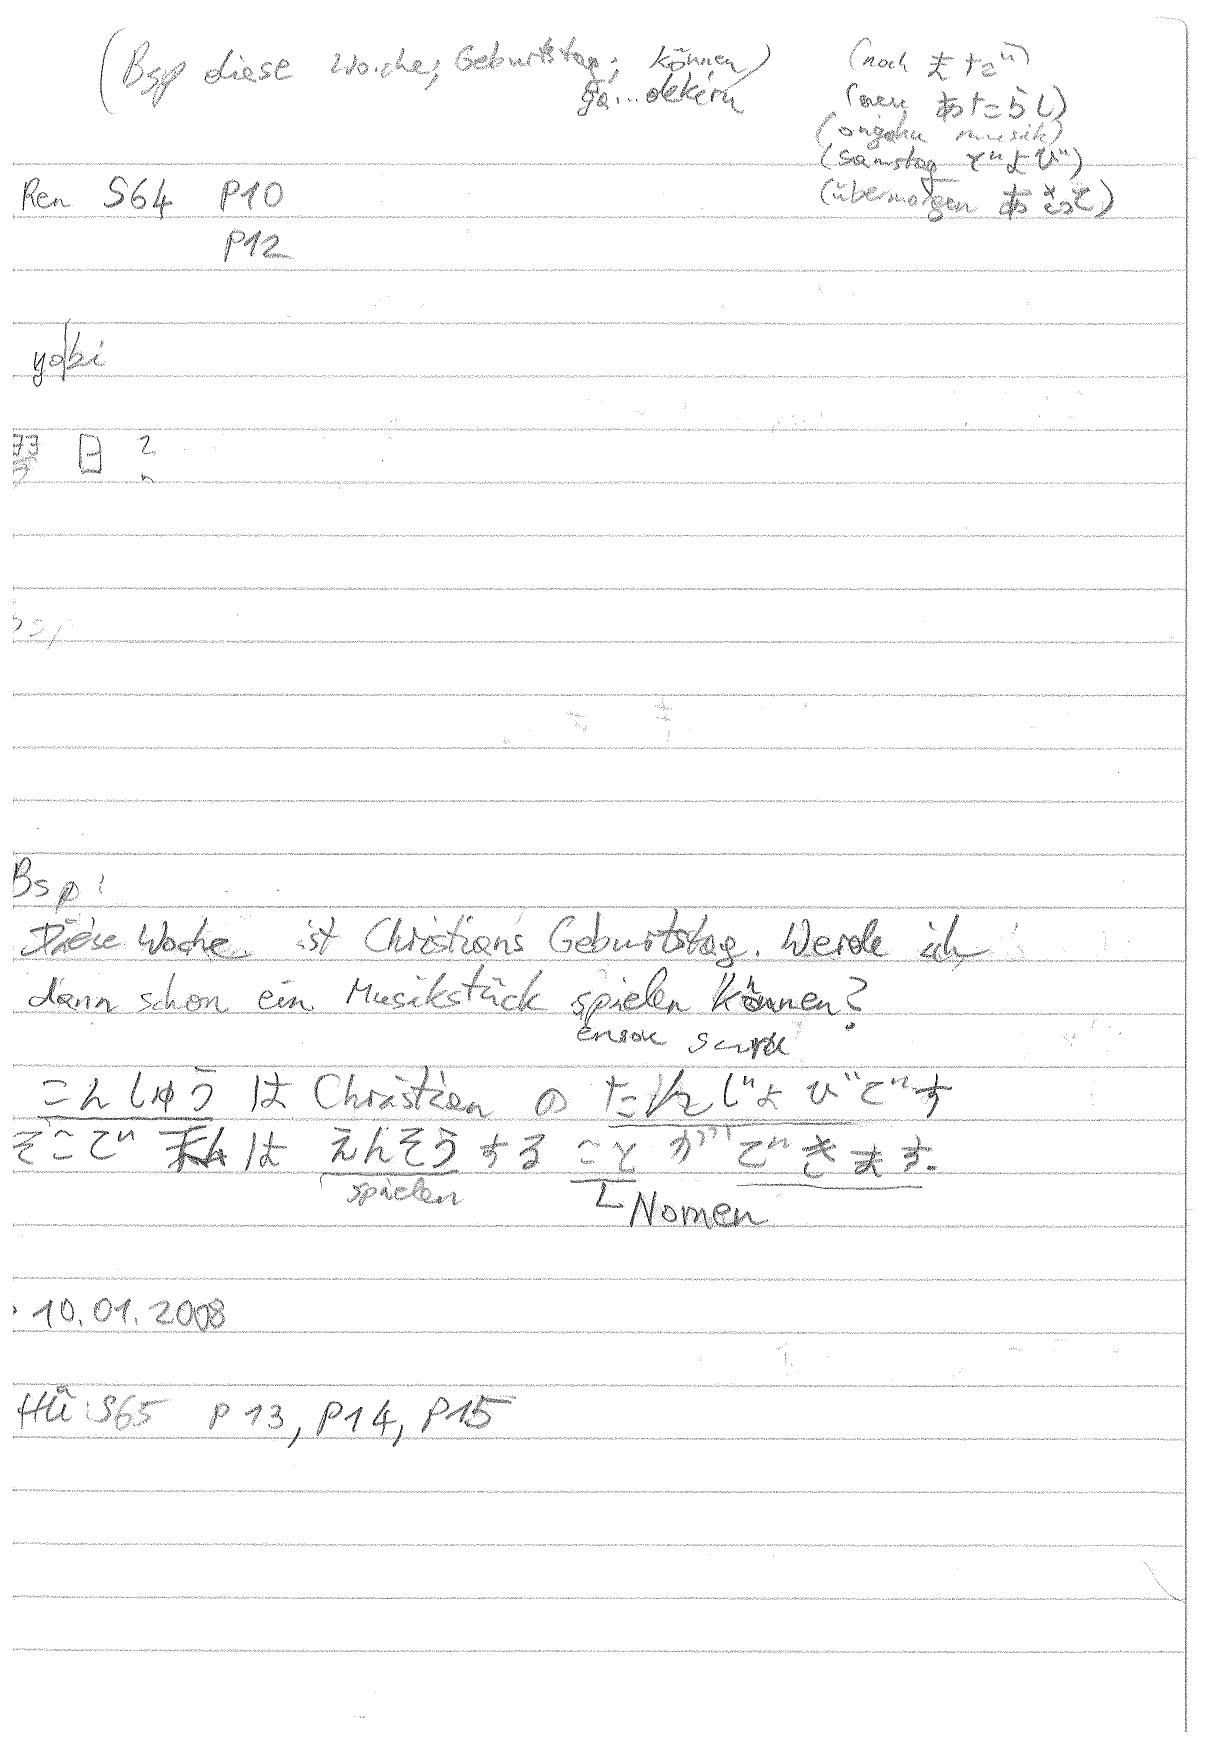 (Bsp diese Woche, Geburtstag; können)
ga... dekiru
(noch まだ)
(neu あたらし)
(ongaku musik)
(Samstag どよび)
(übermorgen あさって)
Ren S64 P10
P12
yobi
日 ?
bsp
Bsp:
Diese Woche ist Christians Geburtstag. Werde ich
dann schon ein Musikstück spielen können?
ensou suru
こんしゅうは Christian の たんじょびです
そこで 私は えんそうする こと ができます.
spielen
Nomen
10.01.2008
HÜ: S65 P13, P14, P15